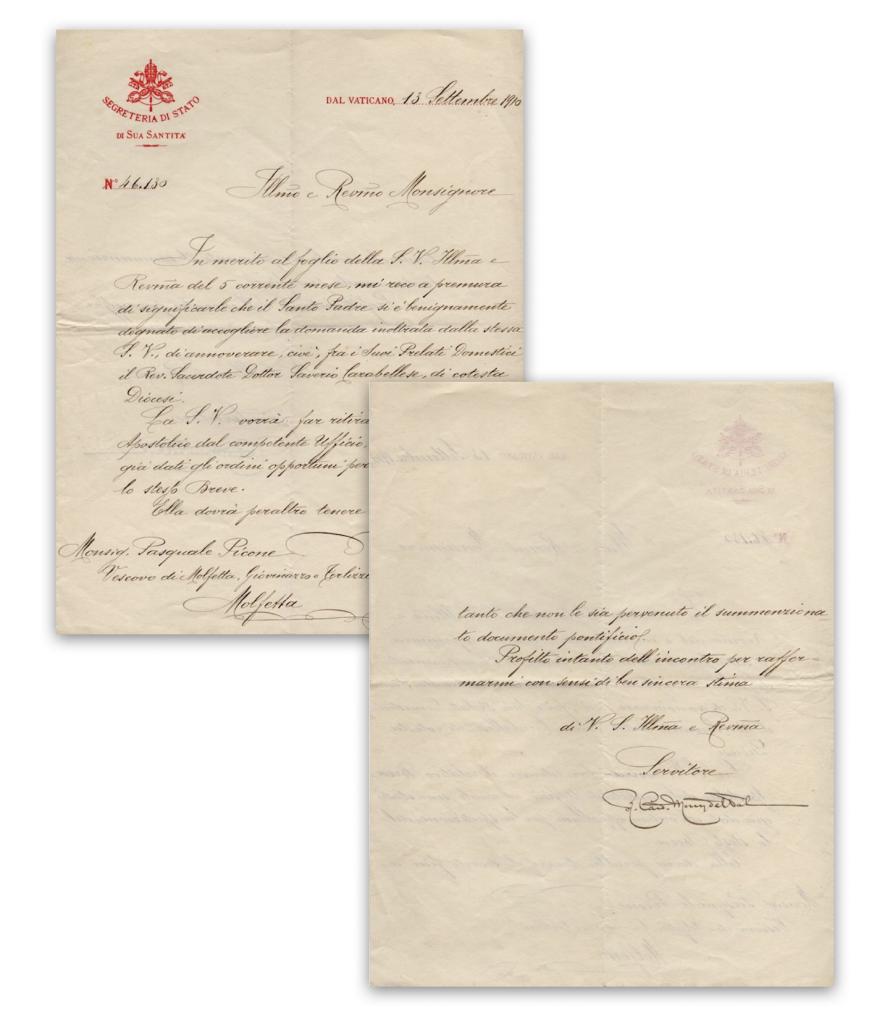 SEGRETERIA DI STATO
DI SUA SANTITÀ
DAL VATICANO, 13 Settembre 1910
N° 46.130
Illmo e Revmo Monsignore
In merito al foglio della S. V. Illma e
Revma del 5 corrente mese, mi reco a premura
di significarle che il Santo Padre si è benignamente
degnato di accogliere la domanda inoltrata dalla stessa
S. V., di annoverare, cioè, fra i Suoi Prelati Domestici
il Rev. Sacerdote Dottor Saverio Carabellese, di cotesta
Diocesi.
La S. V. vorrà far ritira
Apostolico dal competente Ufficio,
già dati gli ordini opportuni per
lo stesso Breve.
Ella dovrà peraltro tenere
Monsig. Pasquale Picone
Vescovo di Molfetta, Giovinazzo e Terlizzi
Molfetta
tanto che non le sia pervenuto il summenziona-
to documento pontificio.
Profitto intanto dell'incontro per raffer-
marmi con sensi di ben sincera stima
di V. S. Illma e Revma
Servitore
R. Card. Merry del Val